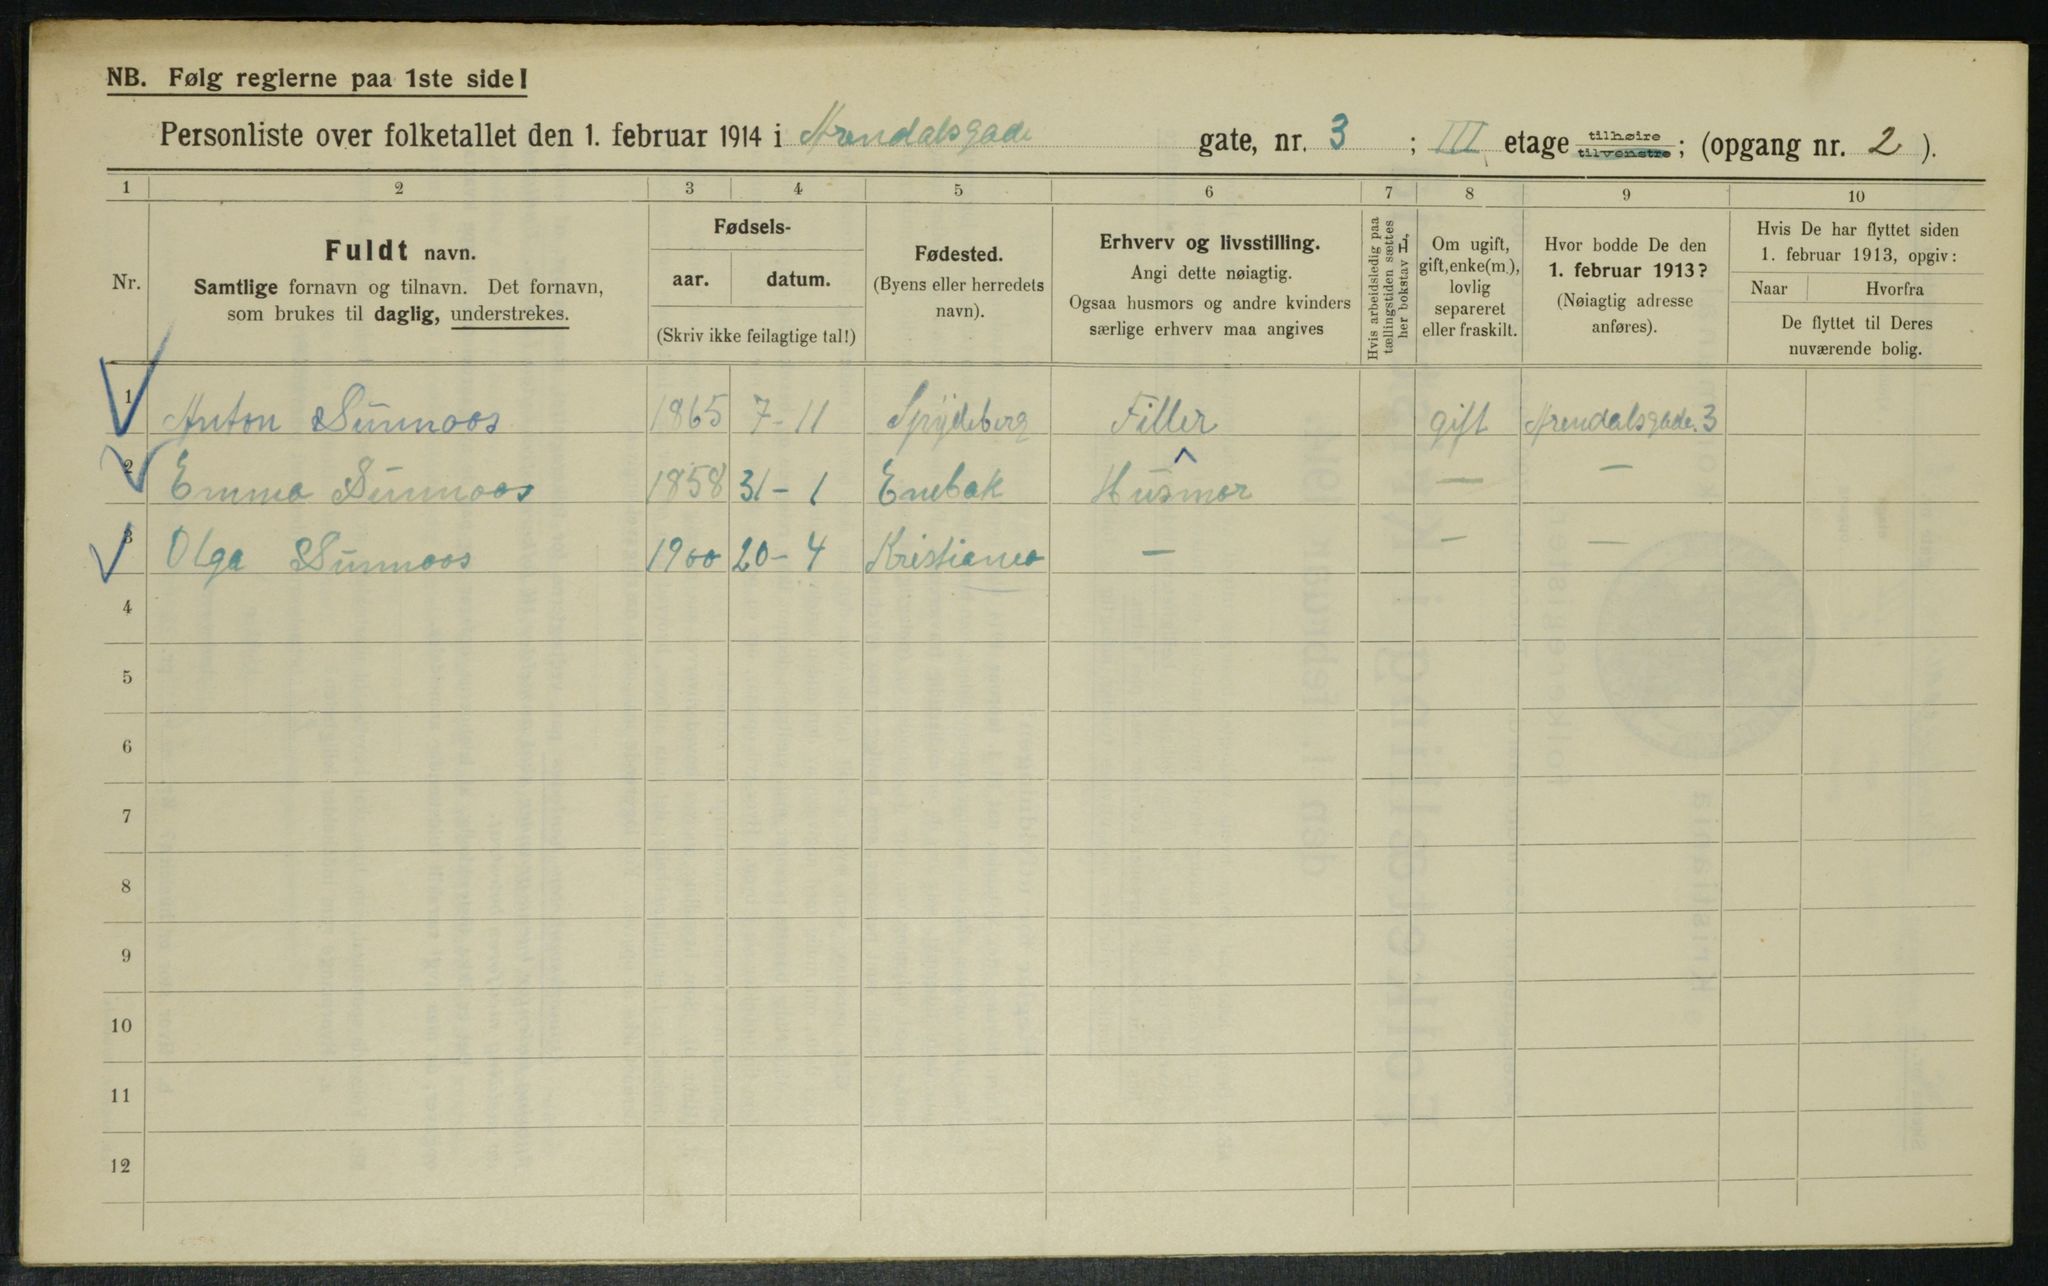 NB. Følg reglerne paa 1ste side!
Personliste over folketallet den 1. februar 1914 i Arendalsgade gate, nr. 3 ; III etage tilhøire tilvenstre; (opgang nr. 2 ).
1 2 3 4 5 6 7 8 9 10
Nr.
Fuldt navn.
Samtlige fornavn og tilnavn. Det fornavn,
som brukes til daglig, understrekes.
Fødsels-
aar. datum.
(Skriv ikke feilagtige tal!)
Fødested.
(Byens eller herredets
navn).
Erhverv og livsstilling.
Angi dette nøiagtig.
Ogsaa husmors og andre kvinders
særlige erhverv maa angives
Hvis arbeidsledig paa
tællingstiden sættes
her bokstav L.
Om ugift,
gift, enke(m.),
lovlig
separeret
eller fraskilt.
Hvor bodde De den
1. februar 1913?
(Nøiagtig adresse
anføres).
Hvis De har flyttet siden
1. februar 1913, opgiv:
Naar Hvorfra
De flyttet til Deres
nuværende bolig.
1 Anton Sunnaas 1865 7-11 Spydeberg Filler gift Arendalsgade 3
2 Emma Sunnaas 1858 31-1 Enebak Husmor — —
3 Olga Sunnaas 1900 20-4 Kristiania — — —
4
5
6
7
8
9
10
11
12